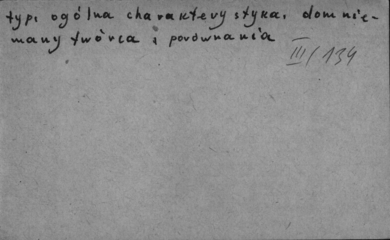 typ. ogólna charakterystyka, domnie-
many twórca i porównania
III/134